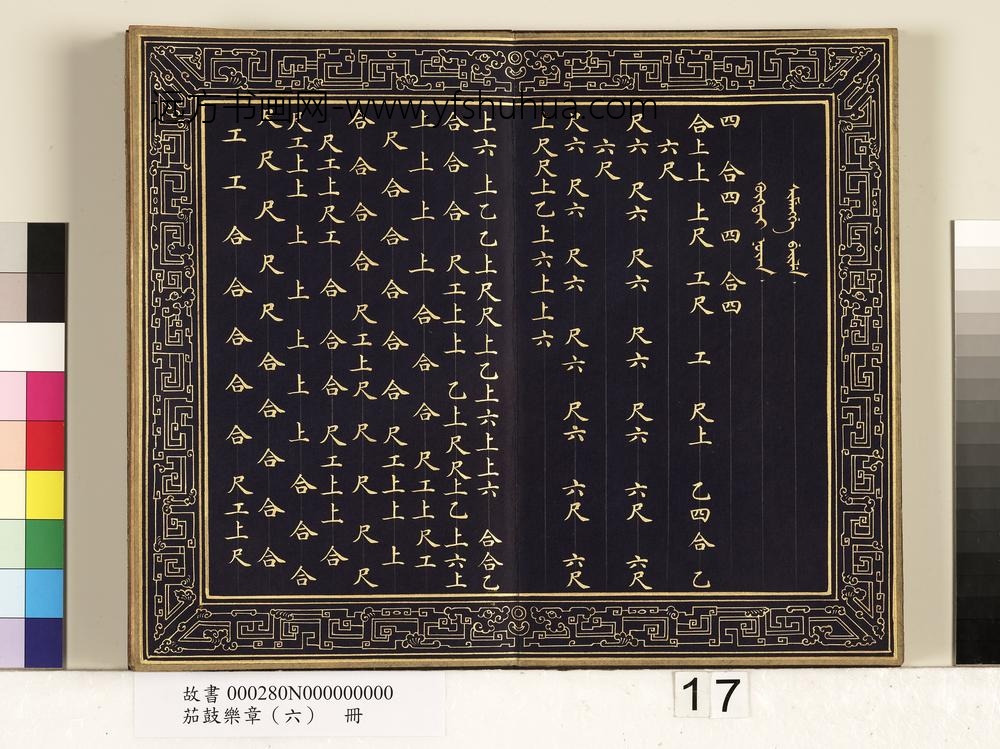 四 合四 四 合四
合上上 上尺 工尺 工 尺上 乙四合 乙
六尺
尺六 尺六 尺六 尺六 尺六 六尺 六尺
六尺
尺六 尺六 尺六 尺六 尺六 六尺 六尺
上尺尺上乙上六上上六
上六 上乙乙上尺尺上乙上六上上六 合合乙
合 合 合 尺工上上 乙上尺尺上乙上六上
上 上 上 上 合 合 合 尺工上上尺工
尺 合 合 合 合 合 尺工上上 上
合 合 合 合 尺工上尺 尺 尺 尺 尺
尺工上尺工 合 合 合 尺工上上 合
尺工上上 上 上 上 上 上 合 合 合
尺 尺 尺 尺 尺 合 合 合 合 合
工 工 合 合 合 合 合 尺工上尺
远方书画网-www.yfshuhua.com
故書 000280N000000000
茄鼓樂章（六） 冊
17